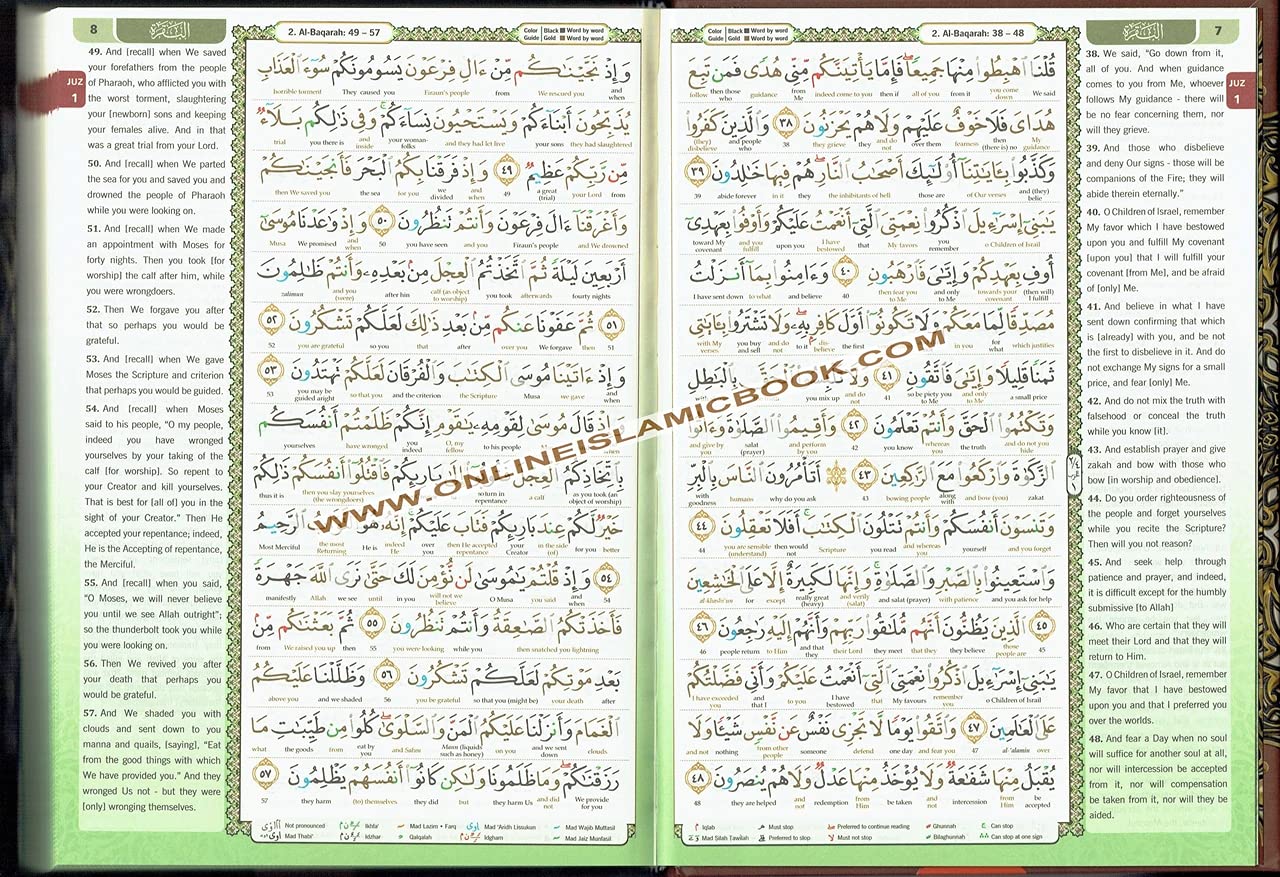 Color Guide | Black ■ Word by word | Gold ■ Word by word
2. Al-Baqarah: 38 – 48
البقرة
7
JUZ 1
قُلْنَا ٱهْبِطُوا۟ مِنْهَا جَمِيعًا ۖ فَإِمَّا يَأْتِيَنَّكُم مِّنِّى هُدًى فَمَن تَبِعَ
We said you come down from it all of you then if indeed come to you from Me guidance then those who follow
هُدَاىَ فَلَا خَوْفٌ عَلَيْهِمْ وَلَا هُمْ يَحْزَنُونَ ٣٨ وَٱلَّذِينَ كَفَرُوا۟
My guidance then (there is) no fearness over them and do not they they grieve 38 and people who (they) disbelieve
وَكَذَّبُوا۟ بِـَٔايَـٰتِنَآ أُو۟لَـٰٓئِكَ أَصْحَـٰبُ ٱلنَّارِ ۖ هُمْ فِيهَا خَـٰلِدُونَ ٣٩
and (they) belie of Our verses those are the inhabitants of hell they in it abide forever 39
يَـٰبَنِىٓ إِسْرَٰٓءِيلَ ٱذْكُرُوا۟ نِعْمَتِىَ ٱلَّتِىٓ أَنْعَمْتُ عَلَيْكُمْ وَأَوْفُوا۟ بِعَهْدِىٓ
o Children of Israil you remember My favors that I have bestowed upon you and you fulfill toward My covenant
أُوفِ بِعَهْدِكُمْ وَإِيَّـٰىَ فَٱرْهَبُونِ ٤٠ وَءَامِنُوا۟ بِمَآ أَنزَلْتُ
(then will) I fulfill towards your covenant and only to Me then fear you to Me 40 and believe to what I have sent down
مُصَدِّقًا لِّمَا مَعَكُمْ وَلَا تَكُونُوٓا۟ أَوَّلَ كَافِرٍۭ بِهِۦ ۖ وَلَا تَشْتَرُوا۟ بِـَٔايَـٰتِى
which justifies for what in you first disbelieve to it and do not you buy and sell with My verses
ثَمَنًا قَلِيلًا وَإِيَّـٰىَ فَٱتَّقُونِ ٤١ وَلَا بِٱلْبَـٰطِلِ
a small price and only to Me so be piety you to Me 41 and do not you mix up
وَتَكْتُمُوا۟ ٱلْحَقَّ وَأَنتُمْ تَعْلَمُونَ ٤٢ وَأَقِيمُوا۟ ٱلصَّلَوٰةَ وَءَاتُوا۟
and do not you hide the truth whereas you you know 42 and perform by you salat (prayer) and give by you
ٱلزَّكَوٰةَ وَٱرْكَعُوا۟ مَعَ ٱلرَّٰكِعِينَ ٤٣ أَتَأْمُرُونَ ٱلنَّاسَ بِٱلْبِرِّ
zakat and bow (you) along with bowing people 43 why do you ask humans with goodness
وَتَنسَوْنَ أَنفُسَكُمْ وَأَنتُمْ تَتْلُونَ ٱلْكِتَـٰبَ ۚ أَفَلَا تَعْقِلُونَ ٤٤
and you forget yourself and whereas you you read Scripture then would not you are sensible (understand) 44
وَٱسْتَعِينُوا۟ بِٱلصَّبْرِ وَٱلصَّلَوٰةِ ۚ وَإِنَّهَا لَكَبِيرَةٌ إِلَّا عَلَى ٱلْخَـٰشِعِينَ
and you ask for help with patience and salat (prayer) and verily (salat) really great (heavy) except for al-khashi'un
٤٥ ٱلَّذِينَ يَظُنُّونَ أَنَّهُم مُّلَـٰقُوا۟ رَبِّهِمْ وَأَنَّهُمْ إِلَيْهِ رَٰجِعُونَ ٤٦
45 those people are they believe that they they meet their Lord and that they to Him people return 46
يَـٰبَنِىٓ إِسْرَٰٓءِيلَ ٱذْكُرُوا۟ نِعْمَتِىَ ٱلَّتِىٓ أَنْعَمْتُ عَلَيْكُمْ وَأَنِّى فَضَّلْتُكُمْ
o Children of Israil remember My favours that I have bestowed to you and that I I have exceeded you
عَلَى ٱلْعَـٰلَمِينَ ٤٧ وَٱتَّقُوا۟ يَوْمًا لَّا تَجْزِى نَفْسٌ عَن نَّفْسٍ شَيْـًٔا وَلَا
over al-'alamin 47 and fear you one day not defend someone from other people nothing and not
يُقْبَلُ مِنْهَا شَفَـٰعَةٌ وَلَا يُؤْخَذُ مِنْهَا عَدْلٌ وَلَا هُمْ يُنصَرُونَ ٤٨
be accepted from Him intercession and not be taken from Him redemption and not they are helped 48
Iqlab Must stop Preferred to continue reading Ghunnah Can stop
Mad Silah Tawilah Preferred to stop Must not stop Bilaghunnah Can stop at one sign
38. We said, “Go down from it,
all of you. And when guidance
comes to you from Me, whoever
follows My guidance - there will
be no fear concerning them, nor
will they grieve.
39. And those who disbelieve
and deny Our signs - those will be
companions of the Fire; they will
abide therein eternally.”
40. O Children of Israel, remember
My favor which I have bestowed
upon you and fulfill My covenant
[upon you] that I will fulfill your
covenant [from Me], and be afraid
of [only] Me.
41. And believe in what I have
sent down confirming that which
is [already] with you, and be not
the first to disbelieve in it. And do
not exchange My signs for a small
price, and fear [only] Me.
42. And do not mix the truth with
falsehood or conceal the truth
while you know [it].
43. And establish prayer and give
zakah and bow with those who
bow [in worship and obedience].
44. Do you order righteousness of
the people and forget yourselves
while you recite the Scripture?
Then will you not reason?
45. And seek help through
patience and prayer, and indeed,
it is difficult except for the humbly
submissive [to Allah]
46. Who are certain that they will
meet their Lord and that they will
return to Him.
47. O Children of Israel, remember
My favor that I have bestowed
upon you and that I preferred you
over the worlds.
48. And fear a Day when no soul
will suffice for another soul at all,
nor will intercession be accepted
from it, nor will compensation
be taken from it, nor will they be
aided.
8
البقرة
2. Al-Baqarah: 49 – 57
Color Guide | Black ■ Word by word | Gold ■ Word by word
JUZ 1
وَإِذْ نَجَّيْنَـٰكُم مِّنْ ءَالِ فِرْعَوْنَ يَسُومُونَكُمْ سُوٓءَ ٱلْعَذَابِ
and when We rescued you from Firaun's people They caused you horrible torment
يُذَبِّحُونَ أَبْنَآءَكُمْ وَيَسْتَحْيُونَ نِسَآءَكُمْ ۚ وَفِى ذَٰلِكُم بَلَآءٌ
they had slaughtered your sons and they had let live your woman-folks and inside you there is trial
مِّن رَّبِّكُمْ عَظِيمٌ ٤٩ وَإِذْ فَرَقْنَا بِكُمُ ٱلْبَحْرَ فَأَنجَيْنَـٰكُمْ
from your Lord a great (trial) 49 and when we divided for you the sea then We saved you
وَأَغْرَقْنَآ ءَالَ فِرْعَوْنَ وَأَنتُمْ تَنظُرُونَ ٥٠ وَإِذْ وَٰعَدْنَا مُوسَىٰٓ
and We drowned Firaun's people and you you have seen 50 and when We promised Musa
أَرْبَعِينَ لَيْلَةً ثُمَّ ٱتَّخَذْتُمُ ٱلْعِجْلَ مِنۢ بَعْدِهِۦ وَأَنتُمْ ظَـٰلِمُونَ
fourty nights afterwards you took calf (as object to worship) after him and you (were) zalimun
٥١ ثُمَّ عَفَوْنَا عَنكُم مِّنۢ بَعْدِ ذَٰلِكَ لَعَلَّكُمْ تَشْكُرُونَ ٥٢
51 then We forgave over you after that so you you are grateful 52
وَإِذْ ءَاتَيْنَا مُوسَى ٱلْكِتَـٰبَ وَٱلْفُرْقَانَ لَعَلَّكُمْ تَهْتَدُونَ ٥٣
and when we gave Musa the Scripture and the criterion so that you you may be guided aright 53
وَإِذْ قَالَ مُوسَىٰ لِقَوْمِهِۦ يَـٰقَوْمِ إِنَّكُمْ ظَلَمْتُمْ أَنفُسَكُم
said Musa to his people O, my fellow indeed you have wronged yourselves
بِٱتِّخَاذِكُمُ ٱلْعِجْلَ بَارِئِكُمْ فَٱقْتُلُوٓا۟ أَنفُسَكُمْ ذَٰلِكُمْ
as you took (an object of worship) a calf so turn in repentance then you slay yourselves (the wrongdoers) thus it is
خَيْرٌ لَّكُمْ عِندَ بَارِئِكُمْ فَتَابَ عَلَيْكُمْ ۚ إِنَّهُۥ هُوَ ٱلرَّحِيمُ
better for you in the side (of) your Creator then He accepted repentance over you indeed He He is the most Returning Most Merciful
٥٤ وَإِذْ قُلْتُمْ يَـٰمُوسَىٰ لَن نُّؤْمِنَ لَكَ حَتَّىٰ نَرَى ٱللَّهَ جَهْرَةً
54 and when you said O Musa will not we believe in you until we see Allah manifestly
فَأَخَذَتْكُمُ ٱلصَّـٰعِقَةُ وَأَنتُمْ تَنظُرُونَ ٥٥ ثُمَّ بَعَثْنَـٰكُم مِّنۢ
then snatched you lightning while you you were looking 55 then We raised you up from
بَعْدِ مَوْتِكُمْ لَعَلَّكُمْ تَشْكُرُونَ ٥٦ وَظَلَّلْنَا عَلَيْكُمُ
after your death so that you (might) be you be grateful 56 and we shaded above you
ٱلْغَمَامَ وَأَنزَلْنَا عَلَيْكُمُ ٱلْمَنَّ وَٱلسَّلْوَىٰ ۖ كُلُوا۟ مِن طَيِّبَـٰتِ مَا
clouds and we sent down on you Mann (liquids such as honey) and Salwa eat by you from the goods what
رَزَقْنَـٰكُمْ ۖ وَمَا ظَلَمُونَا وَلَـٰكِن كَانُوٓا۟ أَنفُسَهُمْ يَظْلِمُونَ ٥٧
We provide for you and did not they harm Us but they did (to) themselves they harm 57
Not pronounced Ikhfa' Mad Lazim • Farq Mad 'Aridh Lissukun Mad Wajib Muttasil
Mad Thabi' Idzhar Qalqalah Idgham Mad Jaiz Munfasil
49. And [recall] when We saved
your forefathers from the people
of Pharaoh, who afflicted you with
the worst torment, slaughtering
your [newborn] sons and keeping
your females alive. And in that
was a great trial from your Lord.
50. And [recall] when We parted
the sea for you and saved you and
drowned the people of Pharaoh
while you were looking on.
51. And [recall] when We made
an appointment with Moses for
forty nights. Then you took [for
worship] the calf after him, while
you were wrongdoers.
52. Then We forgave you after
that so perhaps you would be
grateful.
53. And [recall] when We gave
Moses the Scripture and criterion
that perhaps you would be guided.
54. And [recall] when Moses
said to his people, “O my people,
indeed you have wronged
yourselves by your taking of the
calf [for worship]. So repent to
your Creator and kill yourselves.
That is best for [all of] you in the
sight of your Creator.” Then He
accepted your repentance; indeed,
He is the Accepting of repentance,
the Merciful.
55. And [recall] when you said,
“O Moses, we will never believe
you until we see Allah outright”;
so the thunderbolt took you while
you were looking on.
56. Then We revived you after
your death that perhaps you
would be grateful.
57. And We shaded you with
clouds and sent down to you
manna and quails, [saying], “Eat
from the good things with which
We have provided you.” And they
wronged Us not - but they were
[only] wronging themselves.
WWW.ONLINEISLAMICBOOK.COM